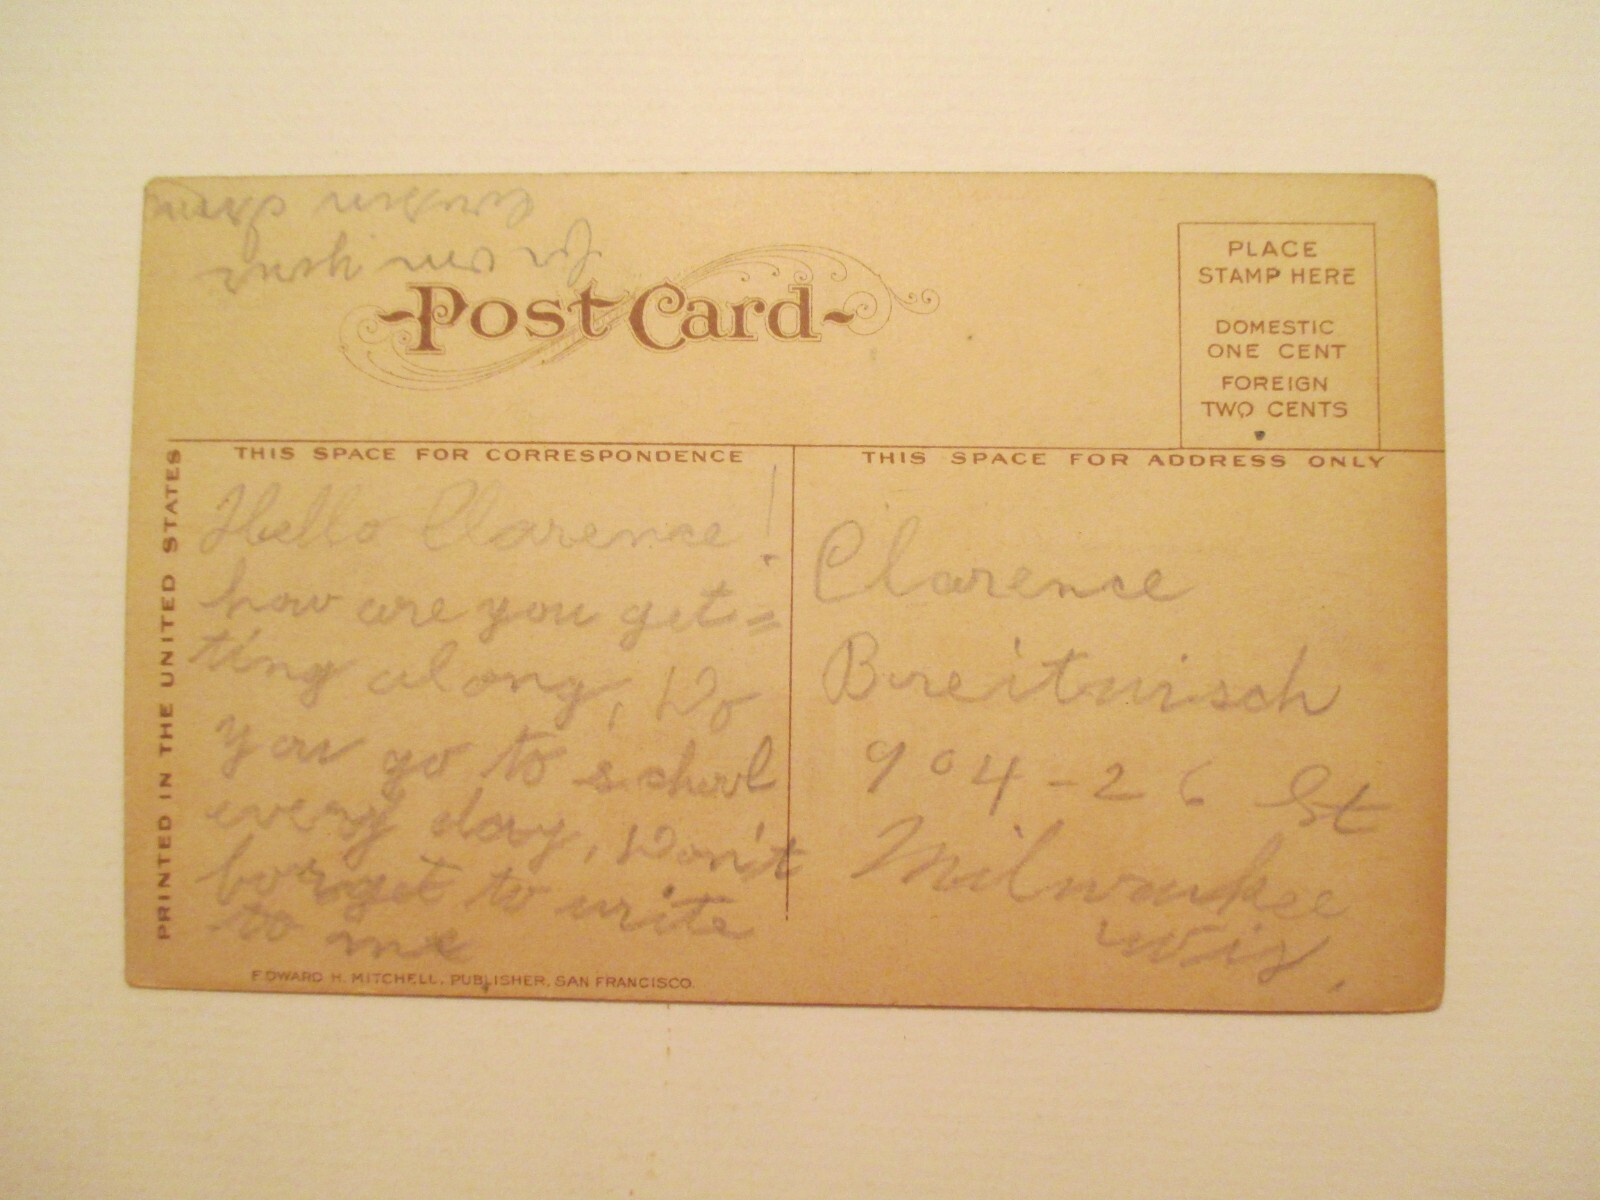 PLACE
STAMP HERE
DOMESTIC
ONE CENT
FOREIGN
TWO CENTS
Post Card
THIS SPACE FOR CORRESPONDENCE
THIS SPACE FOR ADDRESS ONLY
PRINTED IN THE UNITED STATES
Hello Clarence!
how are you get=
ting along, Do
you go to school
every day, Don't
forget to write
to me
yours
Cousin
Clarence
904-26 St
Milwaukee
Wis,
EDWARD H. MITCHELL, PUBLISHER, SAN FRANCISCO.